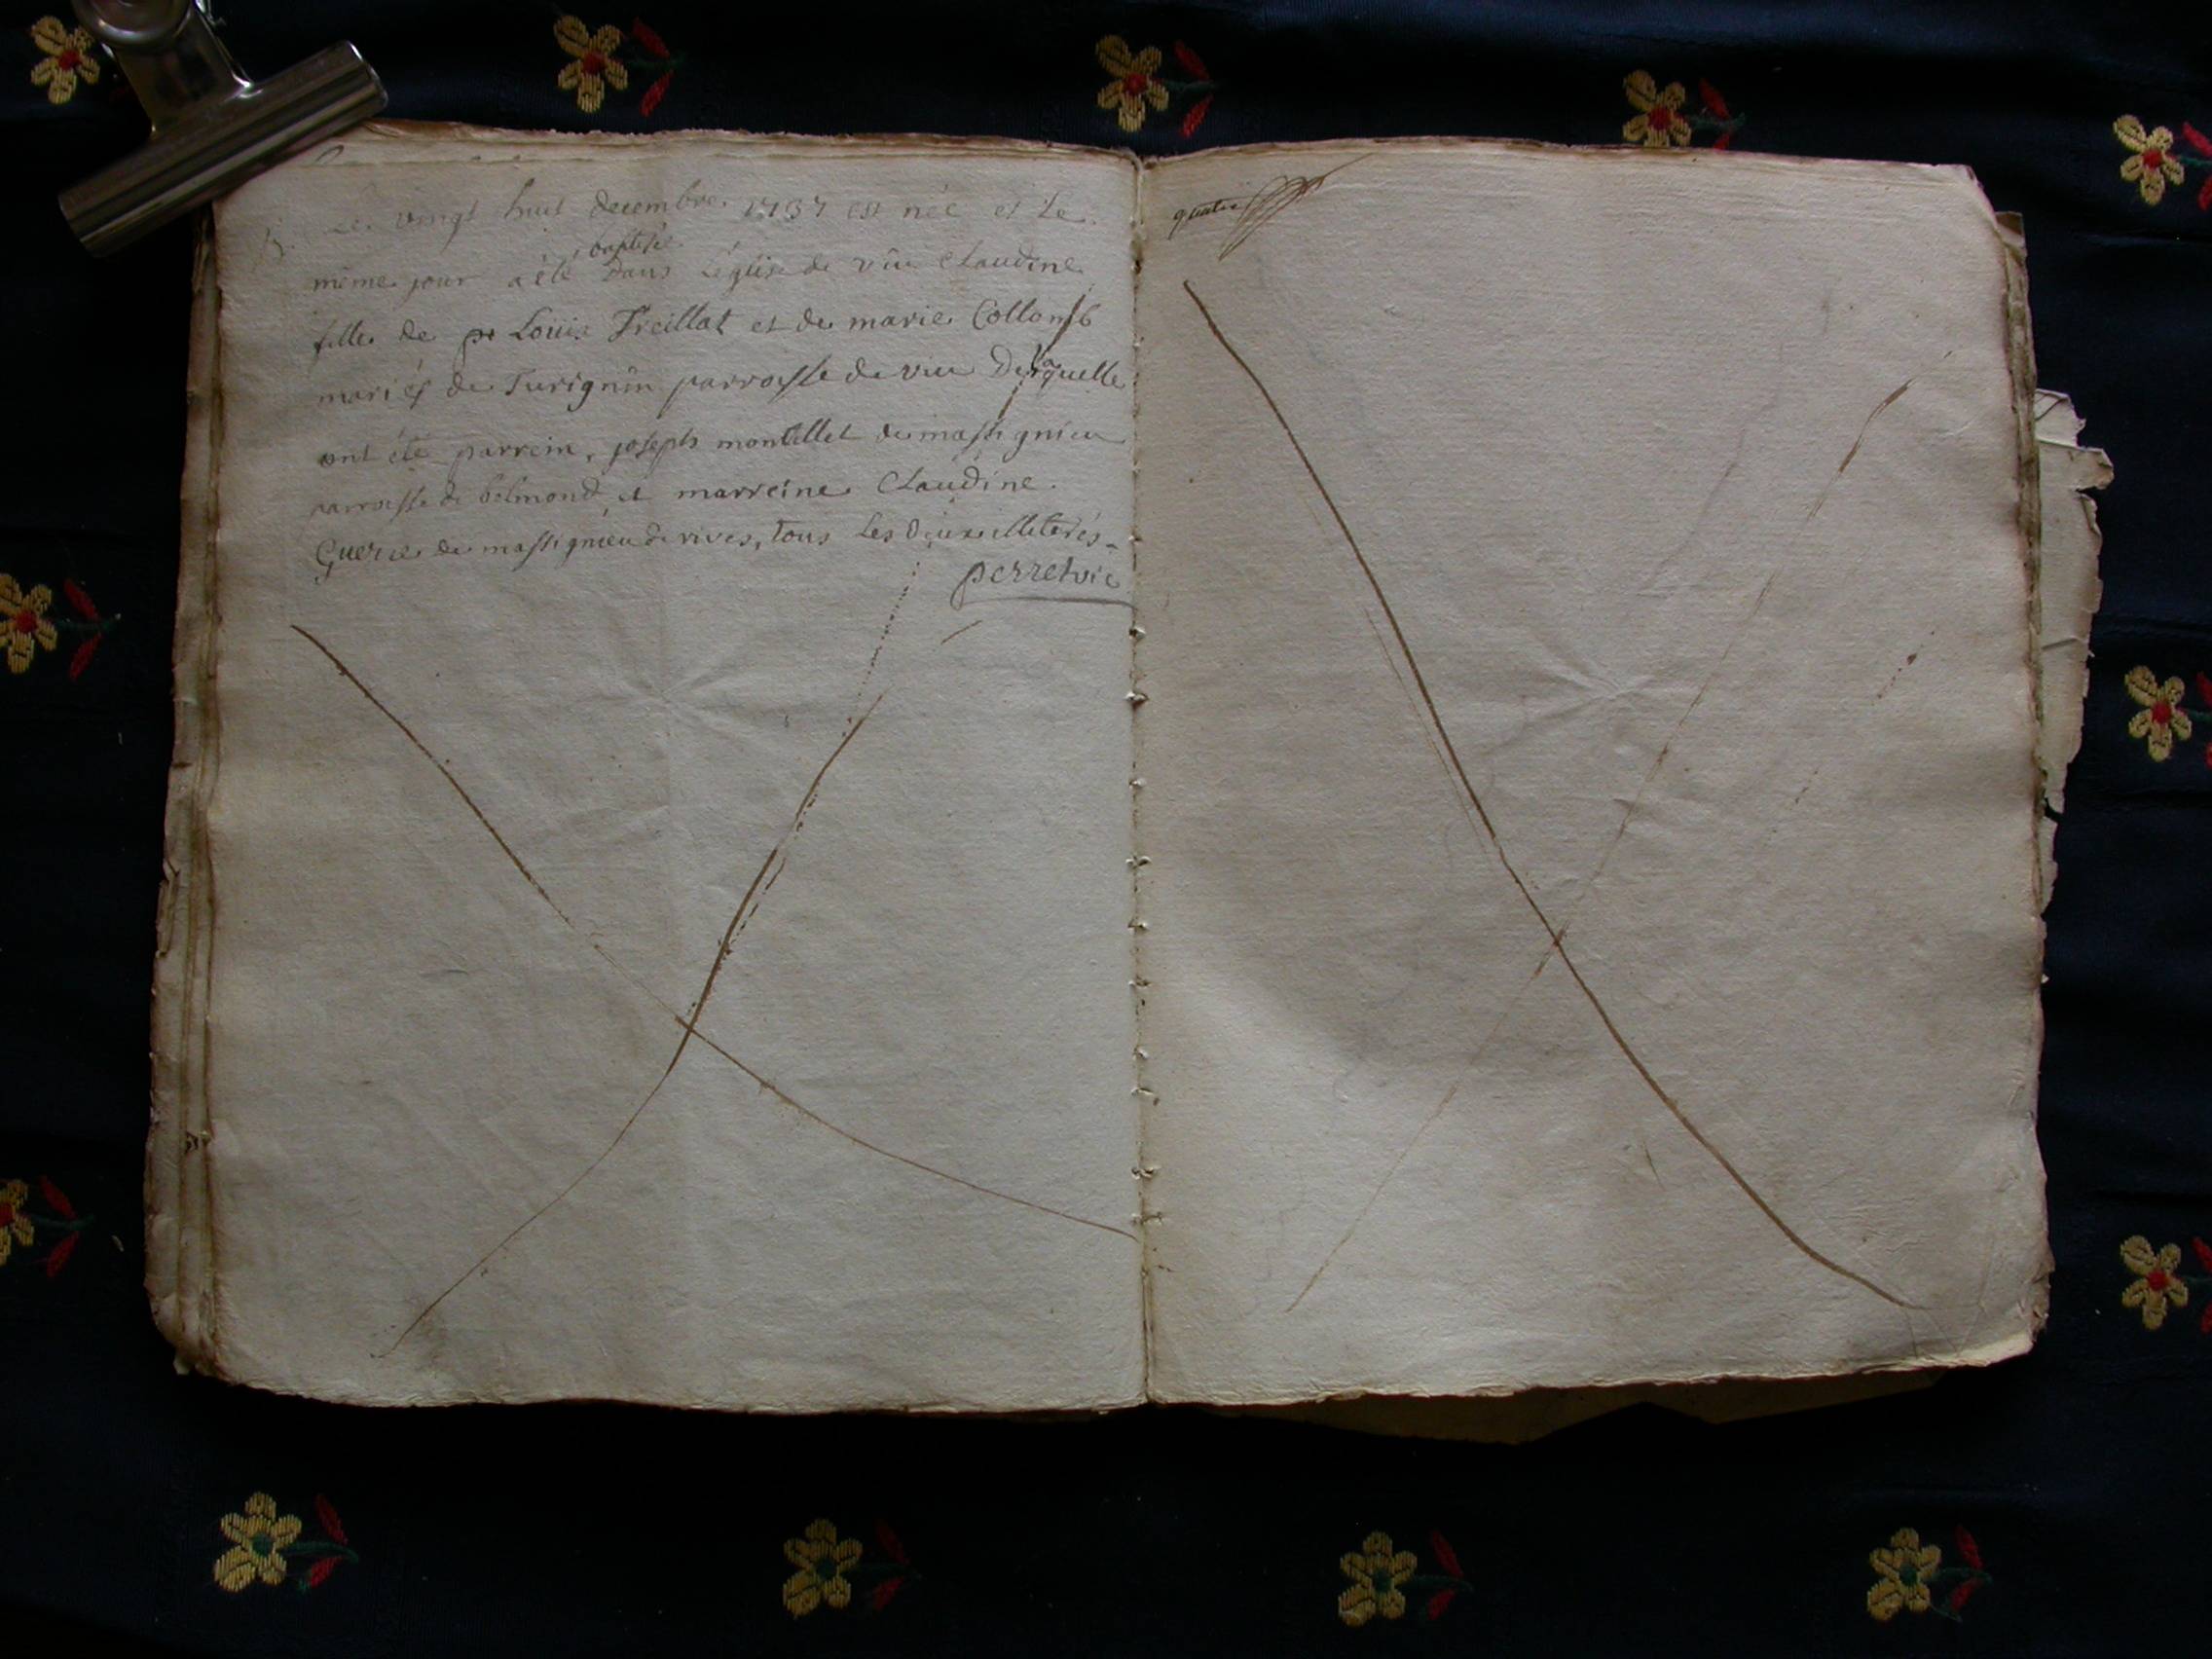 Le vingt huit decembre 1737 est née et le
même jour a été baptisée Dans l'église de viu Claudine
fille de pe Louis Treillat et de marie Collomb
mariés de Turignin parroisse de viu De laquelle
ont été parrein, joseph montillet de massignieu
parroisse de belmond et marreine Claudine
Guerre de massignieu de rives, tous les deux illeterés
perretvic